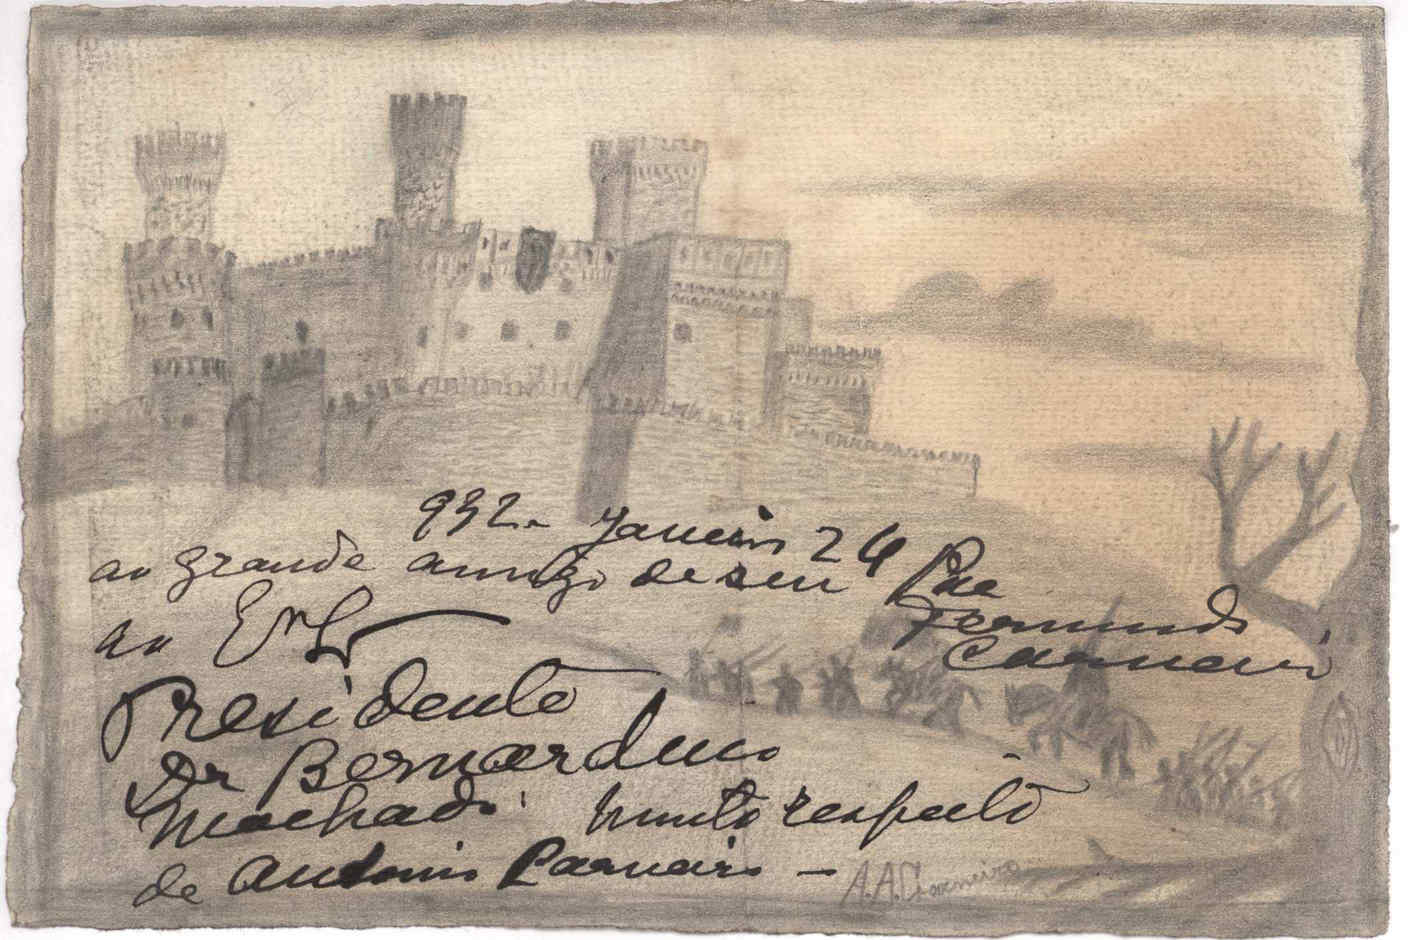 932 - Janeiro 24
ao grande amigo de seu Pae
Fernando
Carneiro
ao Exmo
Presidente
Dr Bernardino
Machado muito respeito
de Antonio Carneiro -
A.A.Carneiro